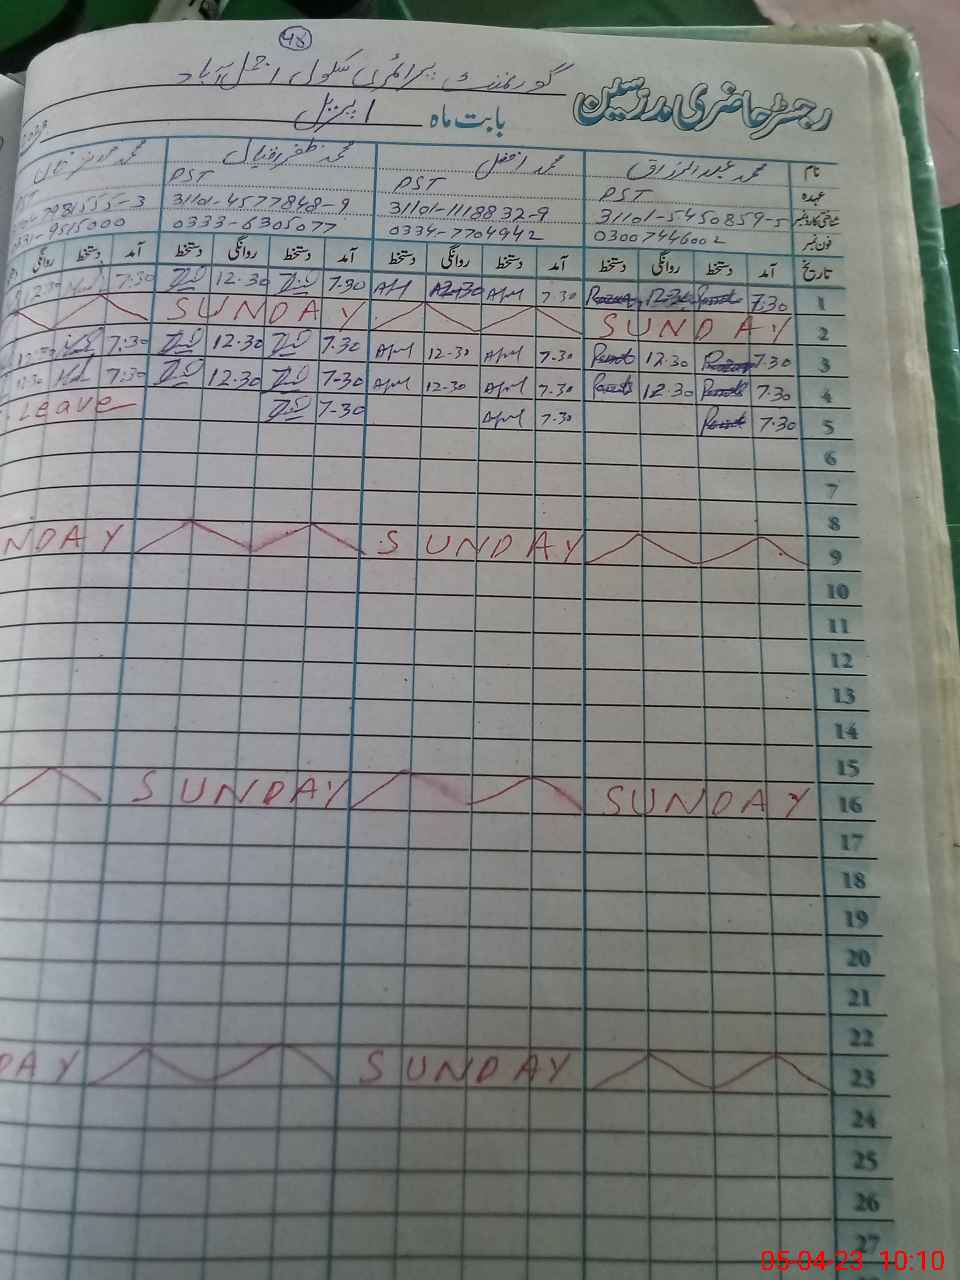 48
گورنمنٹ پرائمری سکول اجمل آباد
رجسٹر حاضری مدرسین
بابت ماہ اپریل
نام محمد عبدالرزاق محمد افضل محمد ظفر اقبال محمد
عہدہ PST PST PST
شناختی کارڈ نمبر 31101-5450859-5 31101-1118832-9 31101-4577848-9
فون نمبر 03007446002 0334-7704942 0333-6305077 331-9515000
تاریخ آمد دستخط روانگی دستخط آمد دستخط روانگی دستخط آمد دستخط روانگی دستخط آمد دستخط روانگی
1 7.30 12.30 7.30 12.30 7.30 12.30 7.30 12.30
2 SUNDAY SUNDAY
3 7.30 12.30 7.30 12.30 7.30 12.30 7.30
4 7.30 12.30 7.30 12.30 7.30 12.30 7.30 12.30
5 7.30 7.30 7-30 Leave
6
7
8
9 SUNDAY NDAY
10
11
12
13
14
15
16 SUNDAY SUNDAY
17
18
19
20
21
22
23 SUNDAY DAY
24
25
26
27
05-04-23 10:10